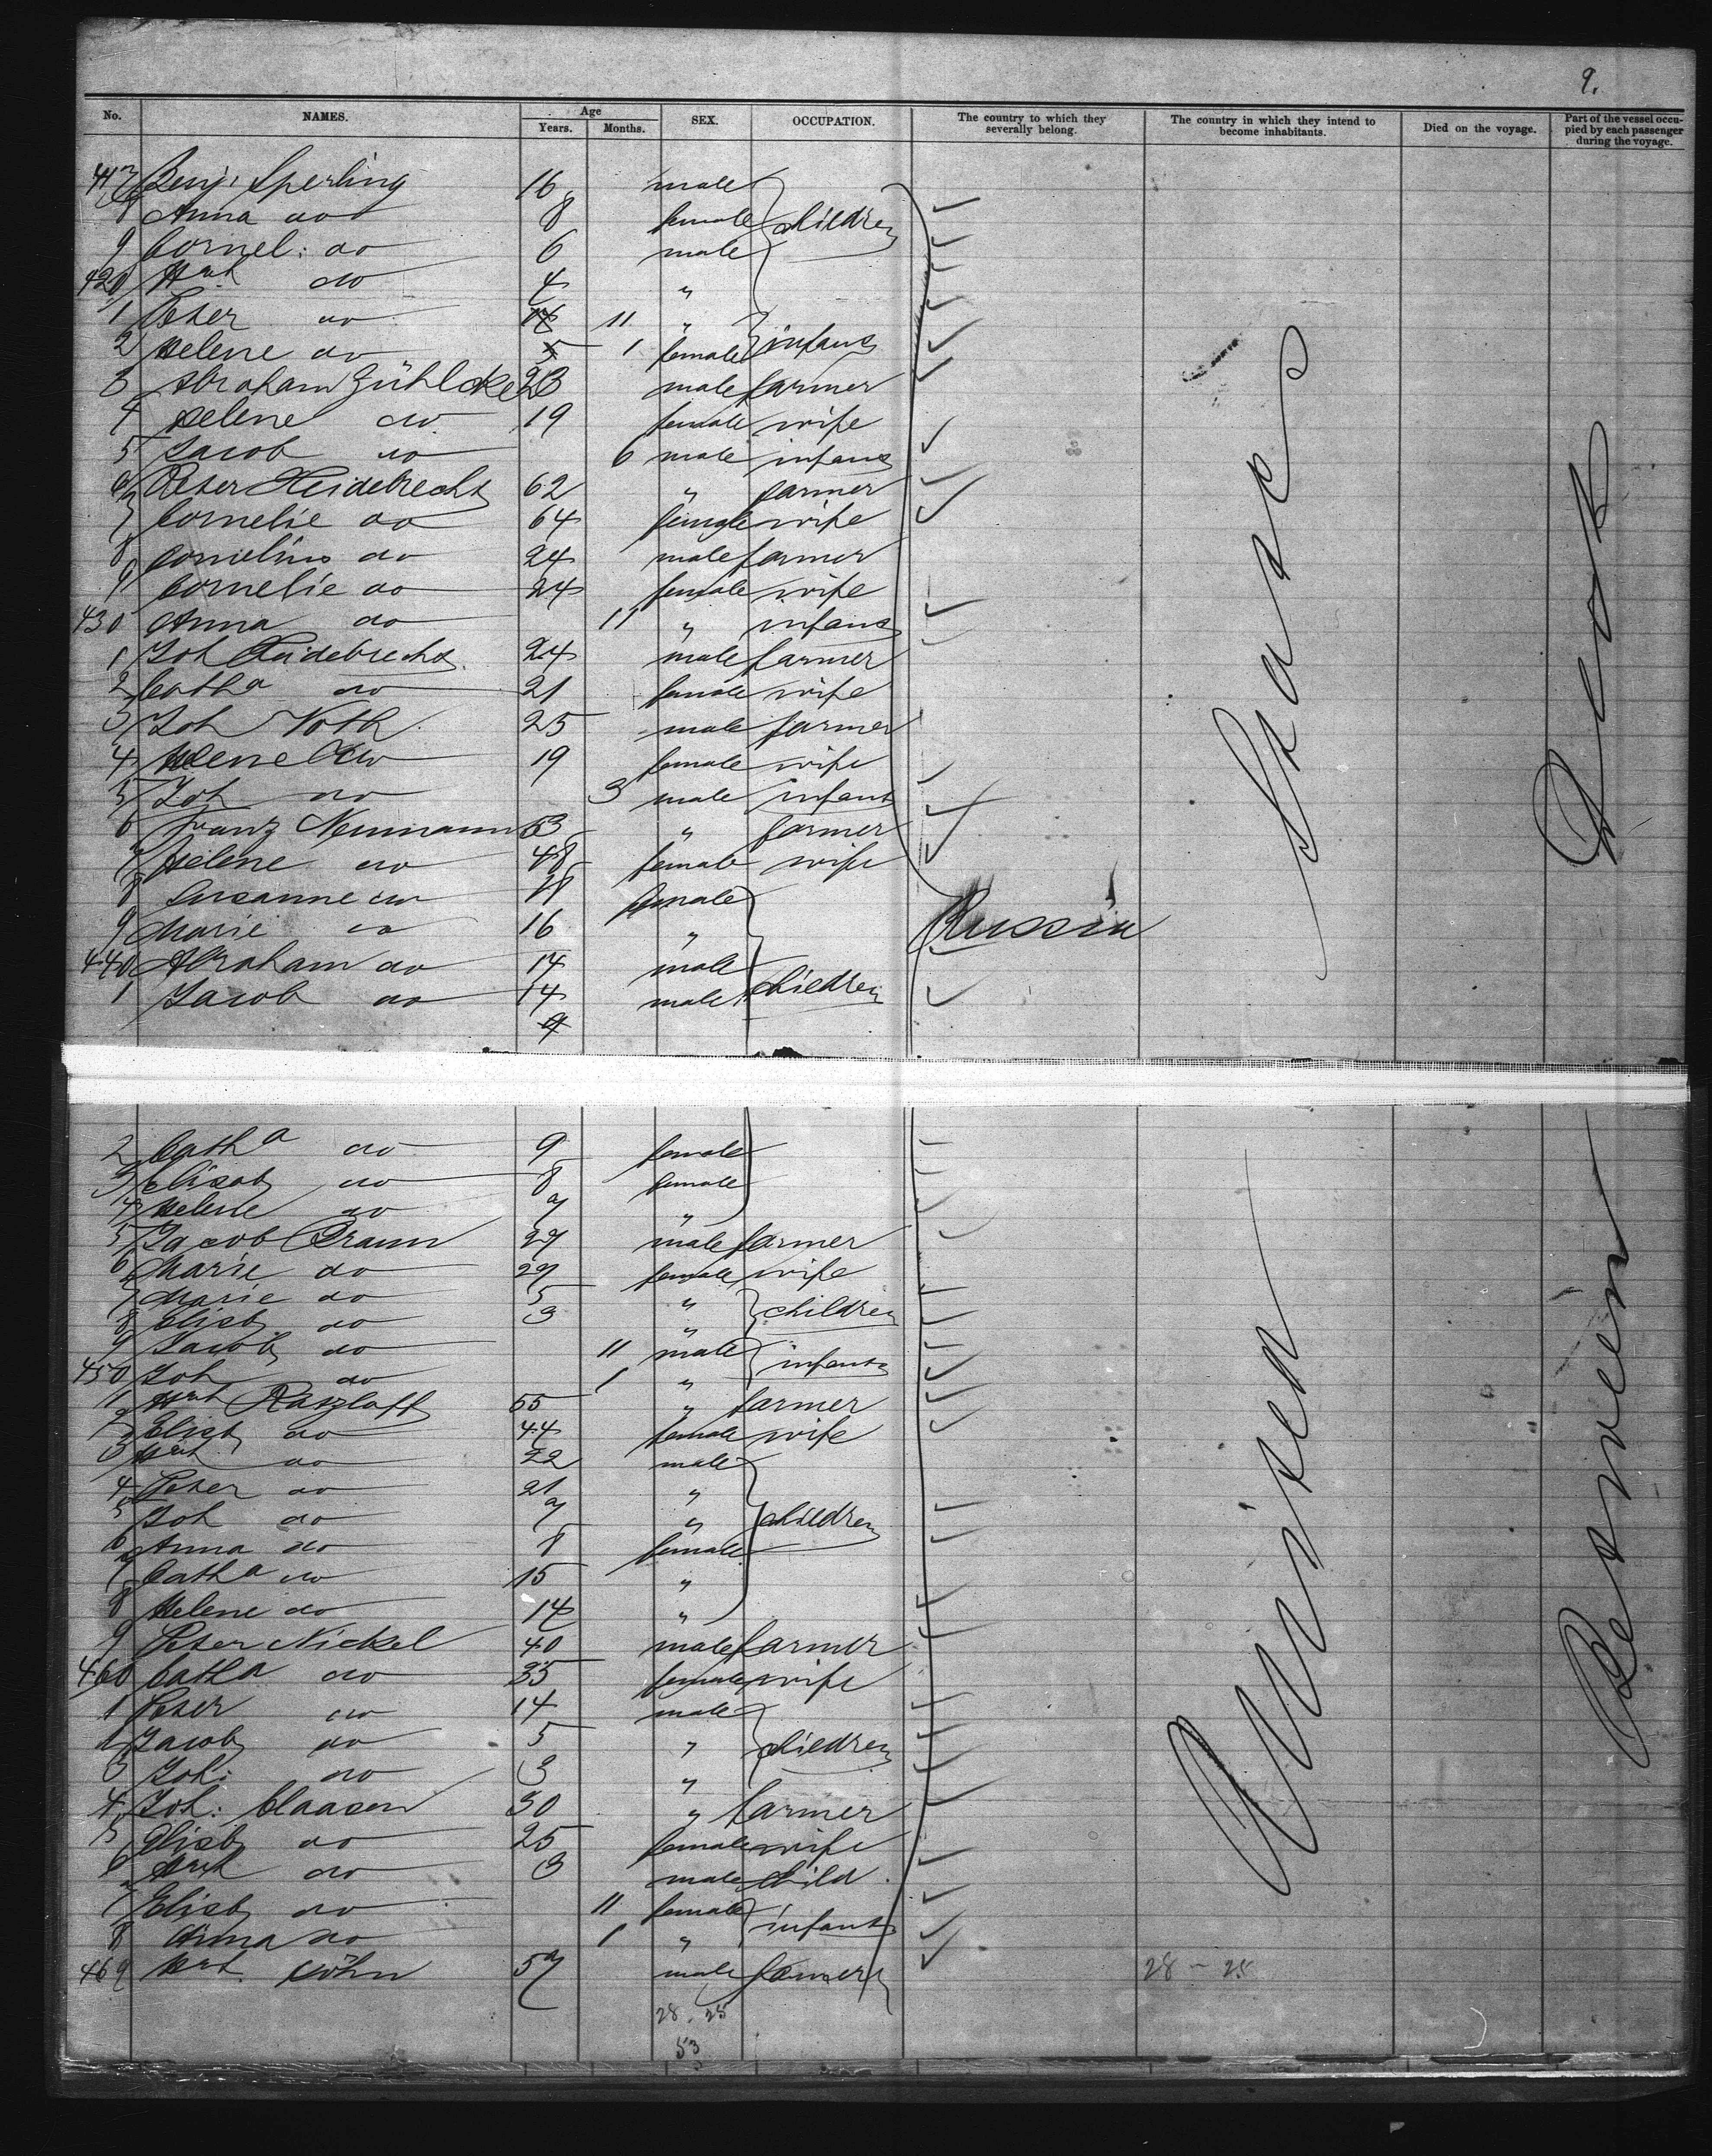 9.
No. NAMES. Age Years. Months. SEX. OCCUPATION. The country to which they severally belong. The country in which they intend to become inhabitants. Died on the voyage. Part of the vessel occupied by each passenger during the voyage.
417 Benj: Sperling 16 male
8 Anna do 8 female children
9 Cornel: do 6 male
420 Hrch do 4 "
1 Peter do 11 "
2 Helene do 1 female infants
3 Abraham Zühlcke 23 male farmer
4 Helene do 19 female wife
5 Jacob do 6 male infant
6 Peter Heidebrecht 62 " farmer
7 Cornelie do 64 female wife
8 Cornelius do 24 male farmer
9 Cornelie do 24 female wife
430 Anna do 11 " infant
1 Joh Heidebrecht 24 male farmer
2 Catha do 21 female wife
3 Joh Voth 25 male farmer
4 Helene do 19 female wife
5 Joh do 3 male infant
6 Franz Neumann 53 " farmer
7 Helene do 48 female wife
8 Susanne do female
9 Marie do 16 " Russia
440 Abraham do 14 male
1 Jacob do 14 male children
2 Catha do 9 female
3 Elisab do 8 female
4 Helene do 7 "
5 Jacob Braun 27 male farmer
6 Marie do 27 female wife
7 Marie do 5 " children
8 Elisb do 3 "
9 Jacob do 11 male infants
450 Joh do 1 "
1 Hrch Ratzlaff 55 " farmer
2 Elisb do 44 female wife
3 Hrch do 22 male
4 Peter do 21 "
5 Joh do 7 " children
6 Anna do 8 female
7 Catha do 15 "
8 Helene do 14 "
9 Peter Nickel 40 male farmer
460 Catha do 35 female wife
1 Peter do 14 male
2 Jacob do 5 " children
3 Joh: do 3 "
4 Joh: Claasen 30 " farmer
5 Elisb do 25 female wife
6 Hrch do 3 male child
7 Elisb do 11 female infants
8 Anna do 1 "
469 Hrch. Köhn 57 male farmer
28 - 25
28. 25
53
United States
Between Deck